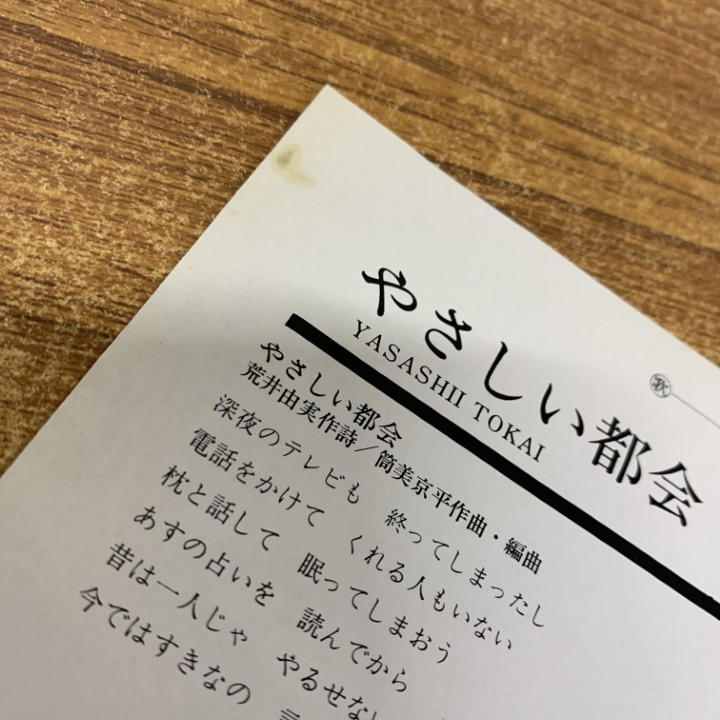 やさしい都会
YASASHII TOKAI
歌
やさしい都会
荒井由実作詩／筒美京平作曲・編曲
深夜のテレビも 終ってしまったし
電話をかけて くれる人もいない
枕と話して 眠ってしまおう
あすの占いを 読んでから
昔は一人じゃ やるせない
今ではすきなの